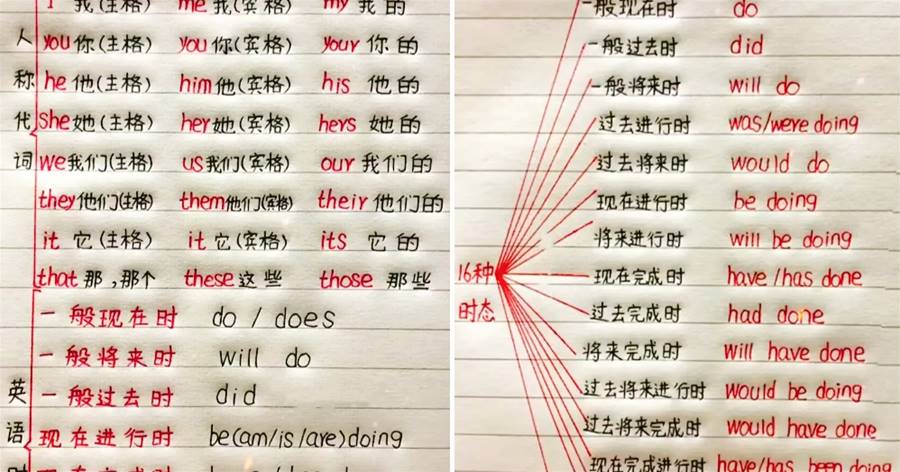 我(宾格) me 我(宾格) my 我的
you你(主格) you你(宾格) your你的
he他(主格) him他(宾格) his 他的
she她(主格) her她(宾格) hers 她的
we我们(主格) us我们(宾格) our我们的
they他们(主格) them他们(宾格) their他们的
it 它(主格) it 它(宾格) its 它的
that那,那个 these这些 those 那些
人称代词
一般现在时 do / does
一般将来时 will do
一般过去时 did
现在进行时 be(am/is/are)doing
英语
16种时态
一般现在时 do
一般过去时 did
一般将来时 will do
过去进行时 was/were doing
过去将来时 would do
现在进行时 be doing
将来进行时 will be doing
现在完成时 have/has done
过去完成时 had done
将来完成时 will have done
过去将来进行时 would be doing
过去将来完成时 would have done
现在完成进行时 have/has been doing